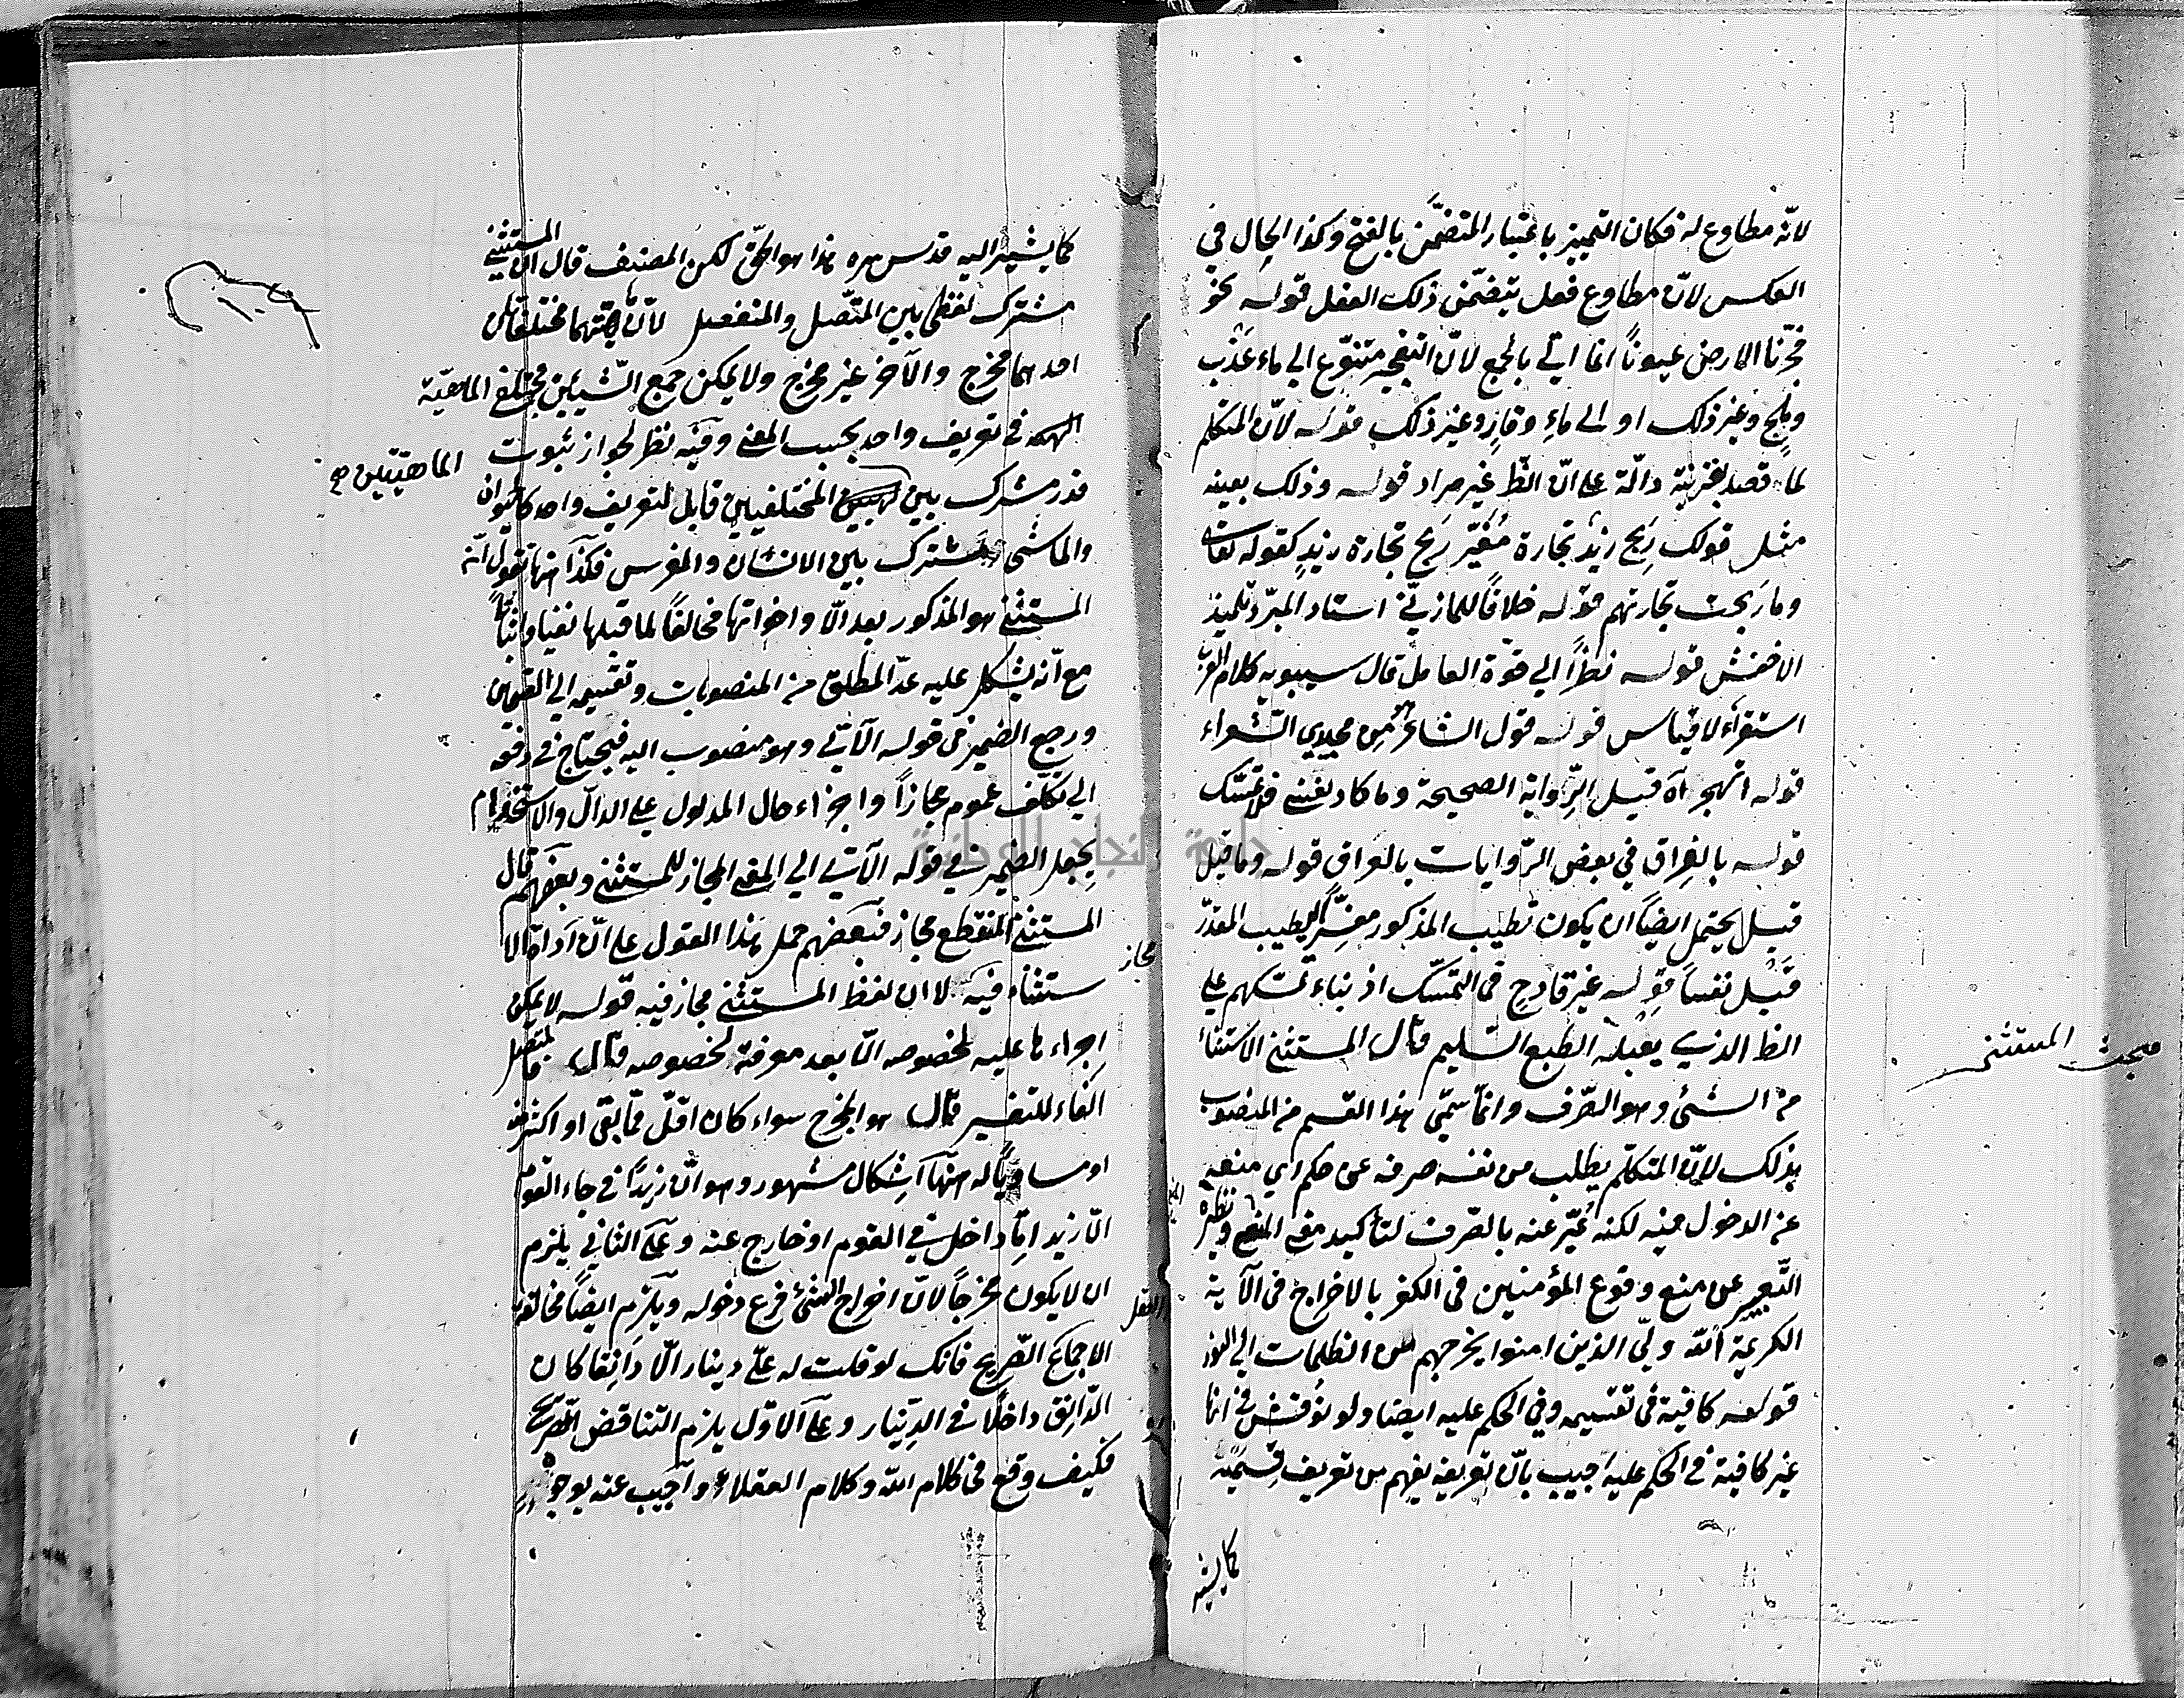 لانّه مطاوع له فكان التمييز باعتبار المتضمَّن بالفتح وكذا الحال في
العكس لانّ مطاوع فعل يتضمّن ذلك الفعل قوله نحو
فجّرنا الارض عيوناً انما اتي بالجمع لانّ التفجير متنوّع الي ماء عَذْب
ومِلح وغير ذلك او الى ماءِ وقارٍ وغير ذلك قوله لانّ المتكلم
لما قصد بقرينة دالّة على انّ الظ غير مراد قوله وذلك بعينه
مثل قولك رَبِح زيْد تجارة رَبِح تجارة زيدٍ كقوله تعالى
وما ربحت تجارتهم قوله خلافًا للمازني استاد المبرّد تلميذ
الاخفش قوله نظراً الي قوّة العامل قال سيبويه كلام العرب
استقراءً لا قياس قوله قول الشاعر هو من مجيدي الشّعراء
قوله اتهجر آه قيل الرّواية الصحيحة وما كاد نفسي فلا تمسّك
قوله بالفِراق في بعض الرّوايات بالعراق قوله وما قيل
قيل يحتمل ايضاً ان يكون تطيب المذكور مفسِّراً لتطيب المقدّر
قَبْل نفساً قوله غير قادحٍ في التمسّك اذ بناء تمسّكهم على
الظ الذي يقبله الطبع السّليم قال المستثنى الاستثناء
من الشئ وهو الصّرف وانّما سمّي هذا القسم من المنصوب
بذلك لانّ المتكلّم يطلب من نفسه صرفه عن حكم اي منعه
عن الدخول فيه لكنه عُبّر عنه بالصّرف لتأكيد معنى المنع ونظيره
التّعبير عن منع وقوع المؤمنين في الكفر بالاخراج في الآية
الكريمة اللّه وليّ الذين امنوا يخرجهم من الظلمات الي النور
قوله كافية في تقسيمه وفي الحكم عليه ايضا ولو نُوقش في انّها
غير كافية في الحكم عليه اجيب بانّ تعريفه يفهم من تعريف قِسمَيْه
كما يشير
مبحث المستثنى
كما يشير اليه قدس سره هذا هو الحقّ لكن المصنف قال ان المستثنى
مشترك لفظي بين المتّصل والمنفصل لانّ ماهيّتهما مختلفتان
احدهما مخرج والآخر غير مخرج ولا يمكن جمع الشّيئين مختلفي الماهيّة
في تعريف واحد بحسب المعنى وفيه نظر لجواز ثبوت
قدر مشترك بين المختلفين قابل لتعريف واحد كالحيوان
الماهيّتين صح
والماشي مشترك بين الانسان والفرس فكذا هنا نقول انّ
المستثنى هو المذكور بعد الاّ واخواتها مخالفاً لما قبلها نفياً واثباتاً
مع انّه يشكل عليه عدّ المطلق من المنصوبات وتقسيمه الي القسمين
ورجع الضمير في قوله الآتي وهو منصوب اليه فيحتاج في دفعه
الي تكلّف عموم مجازاً واجراء حال المدلول على الدالّ والاستخدام
بجعل الضمير في قوله الآتي الي المعنى المجاز للمستثنى وبعضهم قال
المستثنى المنقطع مجاز فبعضهم حمل هذا القول على انّ اداة الا
مجاز
ستثناء فيه لا ان لفظ المستثنى مجاز فيه قوله لا يمكن
اجراءها عليه لخصوصه الاّ بعد معرفة لخصوصه قال فالمتصل
الفاء للتفسير قال هو المخرج سواء كان اقلّ ممّا بقي او اكثر منه
او مساويًا له ههنا اشكال مشهور وهو انّ زيداً في جاء القوم
الّا زيدا امّا داخل في القوم او خارج عنه وعلى الثاني يلزم
ان لا يكون مخرجاً لانّ اخراج الشئ فرع دخوله ويلزم ايضاً مخالفة
العقل
الاجماع الصّريح فانك لو قلت له علىّ دينار الّا دانقا كان
الدّانق داخلًا في الدّينار وعلى الاوّل يلزم التناقض الصّريح
فكيف وقع في كلام اللّه وكلام العقلاء واجيب عنه بوجوه
جامعة النجاح الوطنية